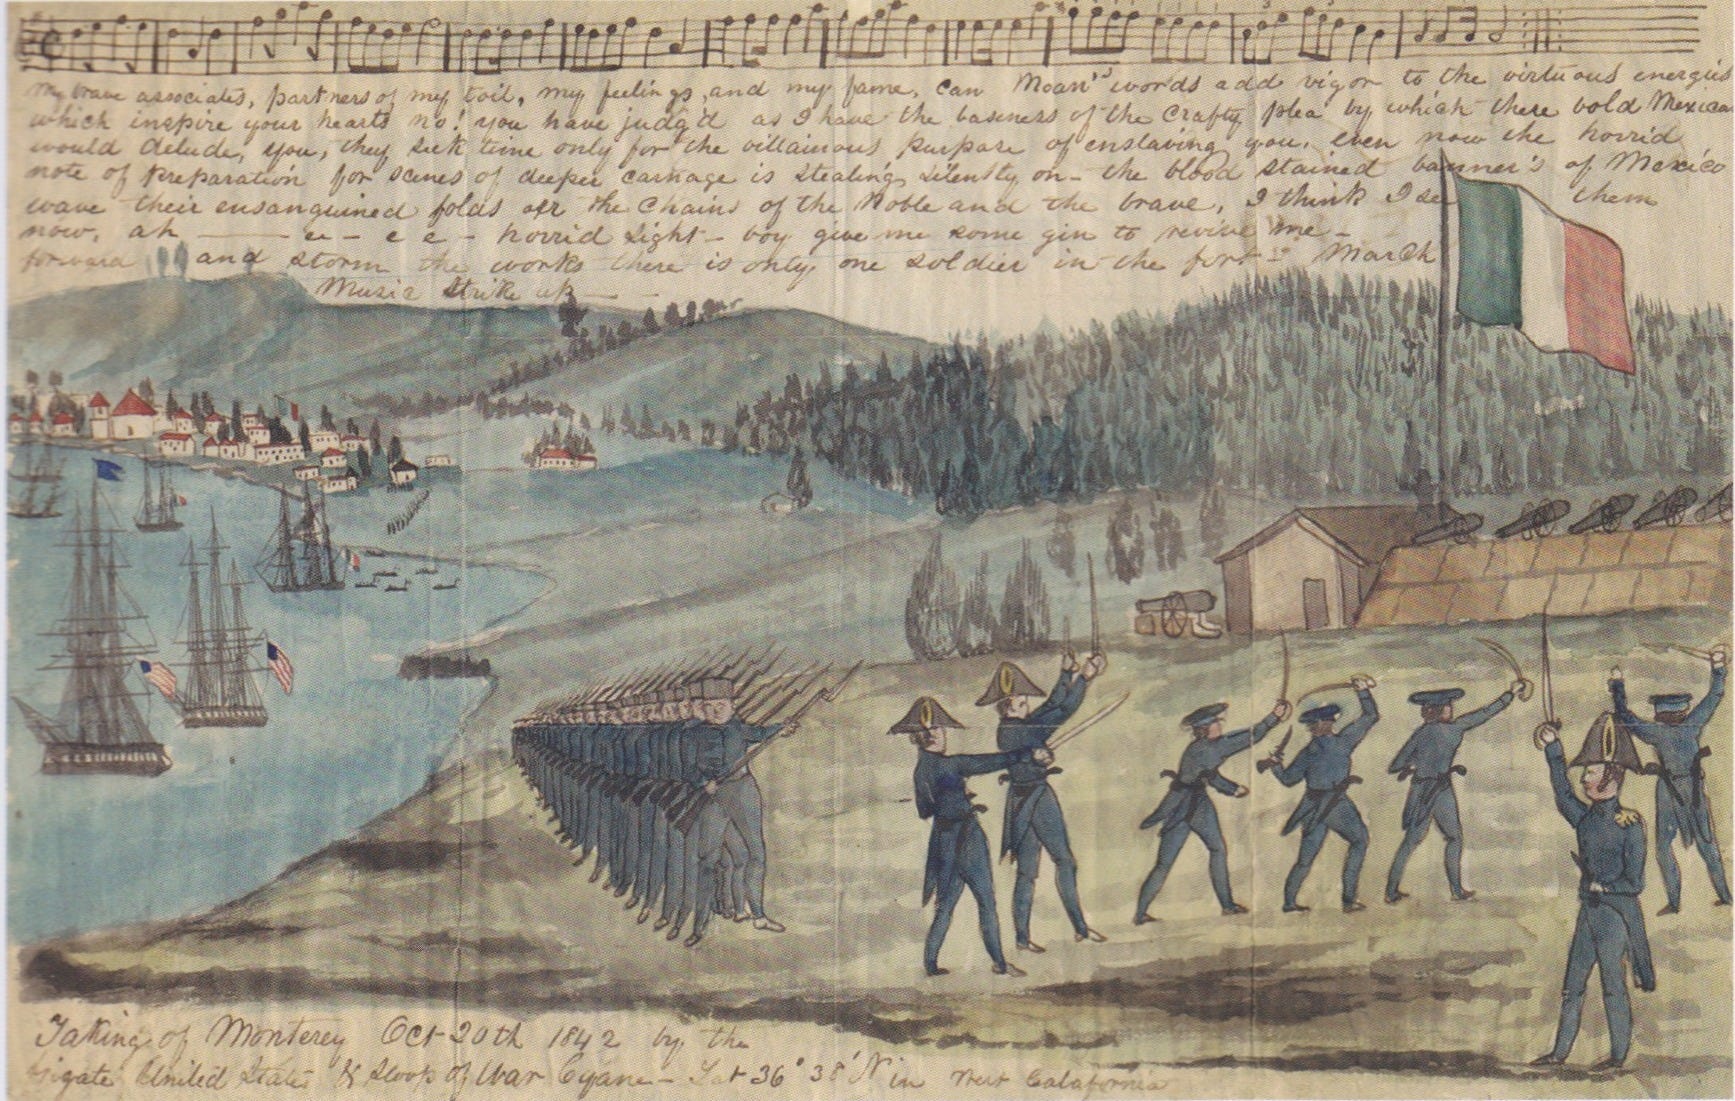 My brave associates, partners of my toil, my feelings, and my fame, can Moan's words add vigor to the virtuous energies
which inspire your hearts no! you have judg'd as I have the baseness of the Crafty plea by which these bold Mexicans
would delude, you, they seek time only for the villainous purpose of enslaving you, even now the horrid
note of preparation for scenes of deeper carnage is stealing silently on - the blood stained banner's of Mexico
wave their ensanguined folds oer the Chains of the Noble and the brave, I think I see them
now, ah ——— e - e e - horrid sight - boy give me some gin to revive me -
forward and storm the works there is only one soldier in the fort - March
Music Strike up
Taking of Monterey Oct 20th 1842 by the
frigate United States & Sloop of War Cyane - Lat 36° 38' N in West Calafornia